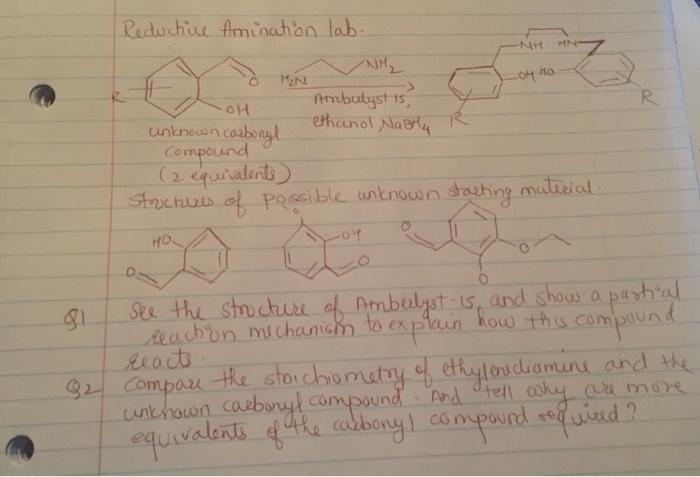 Reductive Amination lab.
NH HN
NH2
H2N
O
OH HO
R
OH
Amberlyst 15,
ethanol, NaBH4
R
R
unknown carbonyl
compound
(2 equivalents)
Structures of possible unknown starting material.
HO
O
O
OH
O
O
O
O
Q1 See the structure of Amberlyst-15, and show a partial
reaction mechanism to explain how this compound
reacts.
Q2 Compare the stoichiometry of ethylenediamine and the
unknown carbonyl compound. And tell why are more
equivalents of the carbonyl compound required?